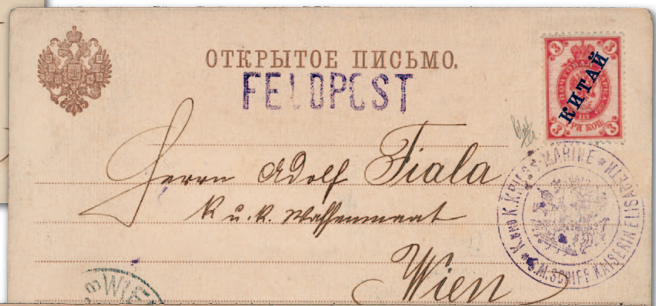 ОТКРЫТОЕ ПИСЬМО.
FELDPOST
3 3
КИТАЙ
3 3
Herrn Adolf Fiala
k. u. k. Waffenmaat
Wien
K. UND K. KRIEGS MARINE
S.M. SCHIFF KAISERIN ELISABETH
WIEN